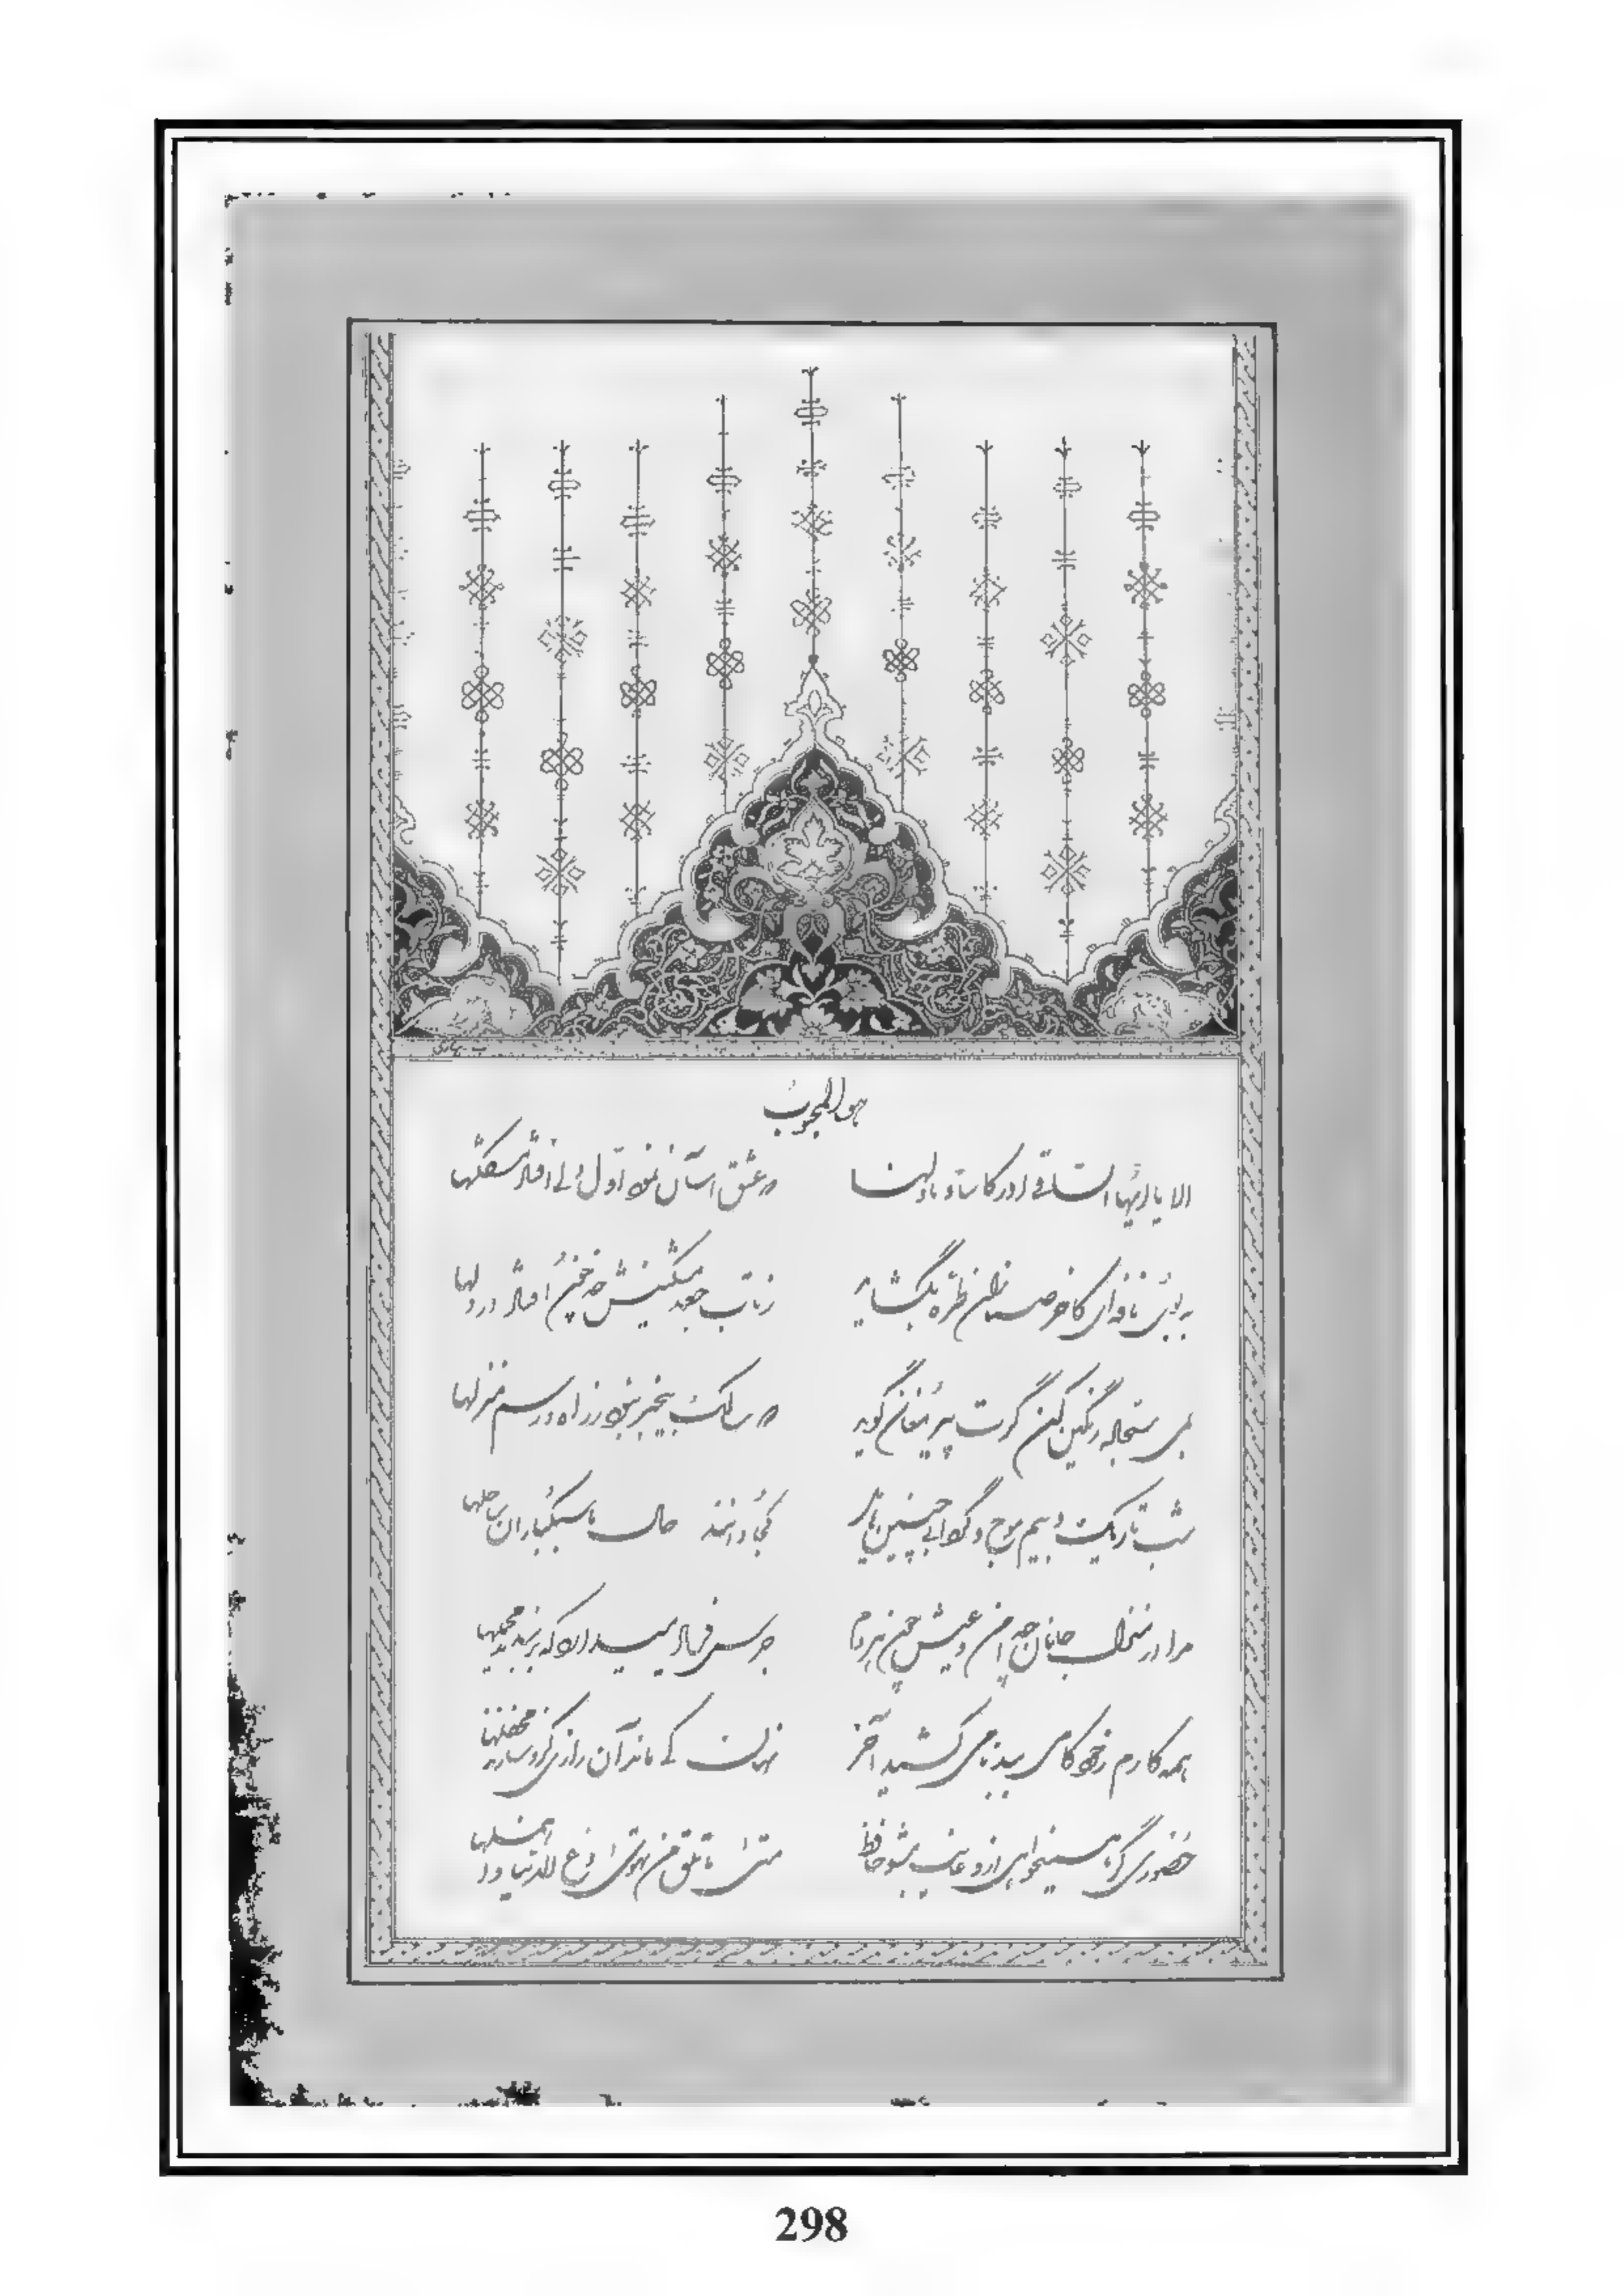 هوالمحبوب
الا یا ایها الساقی ادر کاسا و ناولها که عشق آسان نمود اول ولی افتاد مشکلها
به بوی نافه‌ای کاخر صبا زان طره بگشاید ز تاب جعد مشکینش چه خون افتاد در دلها
بمی سجاده رنگین کن گرت پیر مغان گوید که سالک بیخبر نبود ز راه و رسم منزلها
شب تاریک و بیم موج و گردابی چنین هایل کجا دانند حال ما سبکباران ساحلها
مرا در منزل جانان چه امن و عیش چون هر دم جرس فریاد میدارد که بربندید محملها
همه کارم ز خود کامی ببدنامی کشید آخر نهان کی ماند آن رازی کزو سازند محفلها
حضوری گر همیخواهی ازو غایب مشو حافظ متی ما تلق من تهوی دع الدنیا و اهملها
298